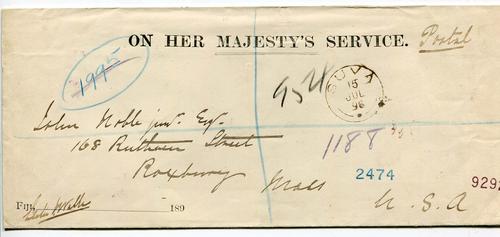 ON HER MAJESTY'S SERVICE. Postal
1995
SUVA
15
JUL
96
John Noble junr. Esq.
168 Ruthven Street
1188
Roxbury
Mass
2474
9292
U. S. A
Fiji,
189